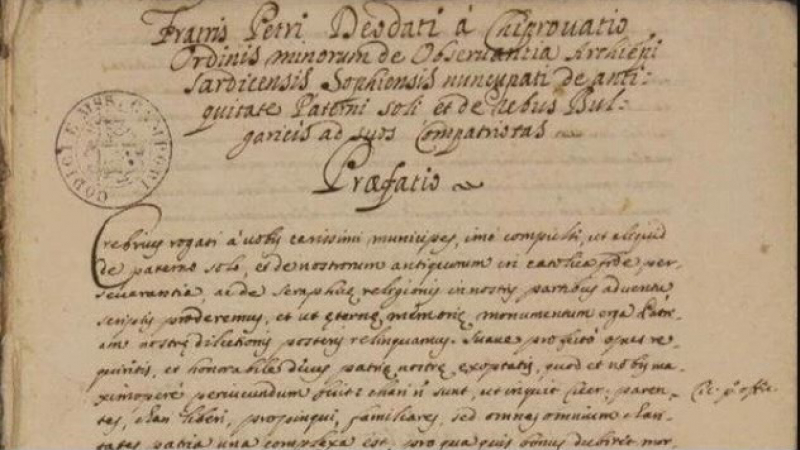 Fratris Petri Deodati à Chiprovatio
Ordinis minorum de Observantia Archiepi
Sardicensis Sophiensis nuncupati de anti-
quitate Paterni soli et de rebus Bul-
garicis ad suos Compatriotas
Præfatio
CODICI E MSS. CAMPORI
Crebrius rogati à vobis carissimi municipes, imò compulsi, ut aliquid
de paterno solo, et de nostrorum antiquorum in catolica fide per-
severantia, ac de seraphicę religionis in nostris partibus adventu
scriptis proderemus, et ut ęternę memorię monumentum erga Patri-
am nostrę dilectionis posteris relinquamus. Suave profectò opus re-
quiritis, et honorabile decus patrię nostrę exoptatis, quod et nobis ma-
ximoperè periucundum fuit: chari n̄ sunt, ut inquit Cicer: paren-
Cic. p.º offic.
tes, chari liberi, propinqui, familiares, sed omnes omnium chari-
tates patria una complexa est, pro qua quis bonus dubitet mor-